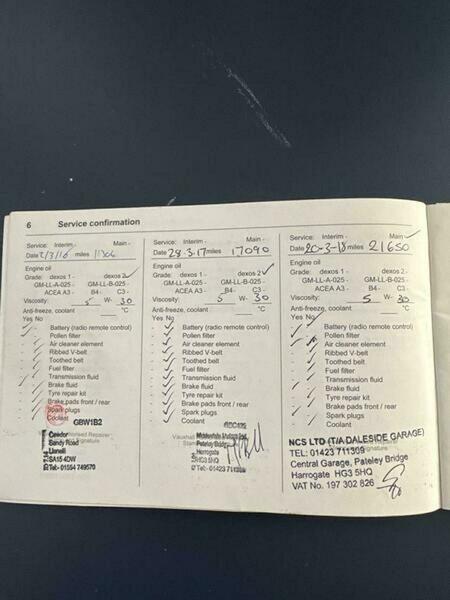 6 Service confirmation
Service: Interim - Main -
Date 2/3/16 miles 11306
Engine oil
Grade: dexos 1 - dexos 2 ✓
GM-LL-A-025 - GM-LL-B-025 -
ACEA A3 - B4 - C3 -
Viscosity: 5 W- 30
Anti-freeze, coolant °C
Yes No
Battery (radio remote control)
Pollen filter
Air cleaner element
Ribbed V-belt
Toothed belt
Fuel filter
Transmission fluid
Brake fluid
Tyre repair kit
Brake pads front / rear
Spark plugs
Coolant
GBW1B2
Sandy Road
Llanelli
SA15 4DW
Tel:- 01554 749570
Service: Interim - Main -
Date 28.3.17 miles 17090
Engine oil
Grade: dexos 1 - dexos 2 ✓
GM-LL-A-025 - GM-LL-B-025 -
ACEA A3 - B4 - C3 -
Viscosity: 5 W- 30
Anti-freeze, coolant °C
Yes No
Battery (radio remote control)
Pollen filter
Air cleaner element
Ribbed V-belt
Toothed belt
Fuel filter
Transmission fluid
Brake fluid
Tyre repair kit
Brake pads front / rear
Spark plugs
Coolant
Vauxhall
Harrogate
HG3 5HQ
Tel:- 01423 711309
Service: Interim - Main - ✓
Date 20-3-18 miles 21650
Engine oil
Grade: dexos 1 - dexos 2 -
GM-LL-A-025 - GM-LL-B-025 -
ACEA A3 - B4 - C3 -
Viscosity: 5 W- 30
Anti-freeze, coolant °C
Yes No
Battery (radio remote control)
Pollen filter
Air cleaner element
Ribbed V-belt
Toothed belt
Fuel filter
Transmission fluid
Brake fluid
Tyre repair kit
Brake pads front / rear
Spark plugs
Coolant
NCS LTD (T/A DALESIDE GARAGE)
TEL: 01423 711309
Central Garage, Pateley Bridge
Harrogate HG3 5HQ
VAT No. 197 302 826